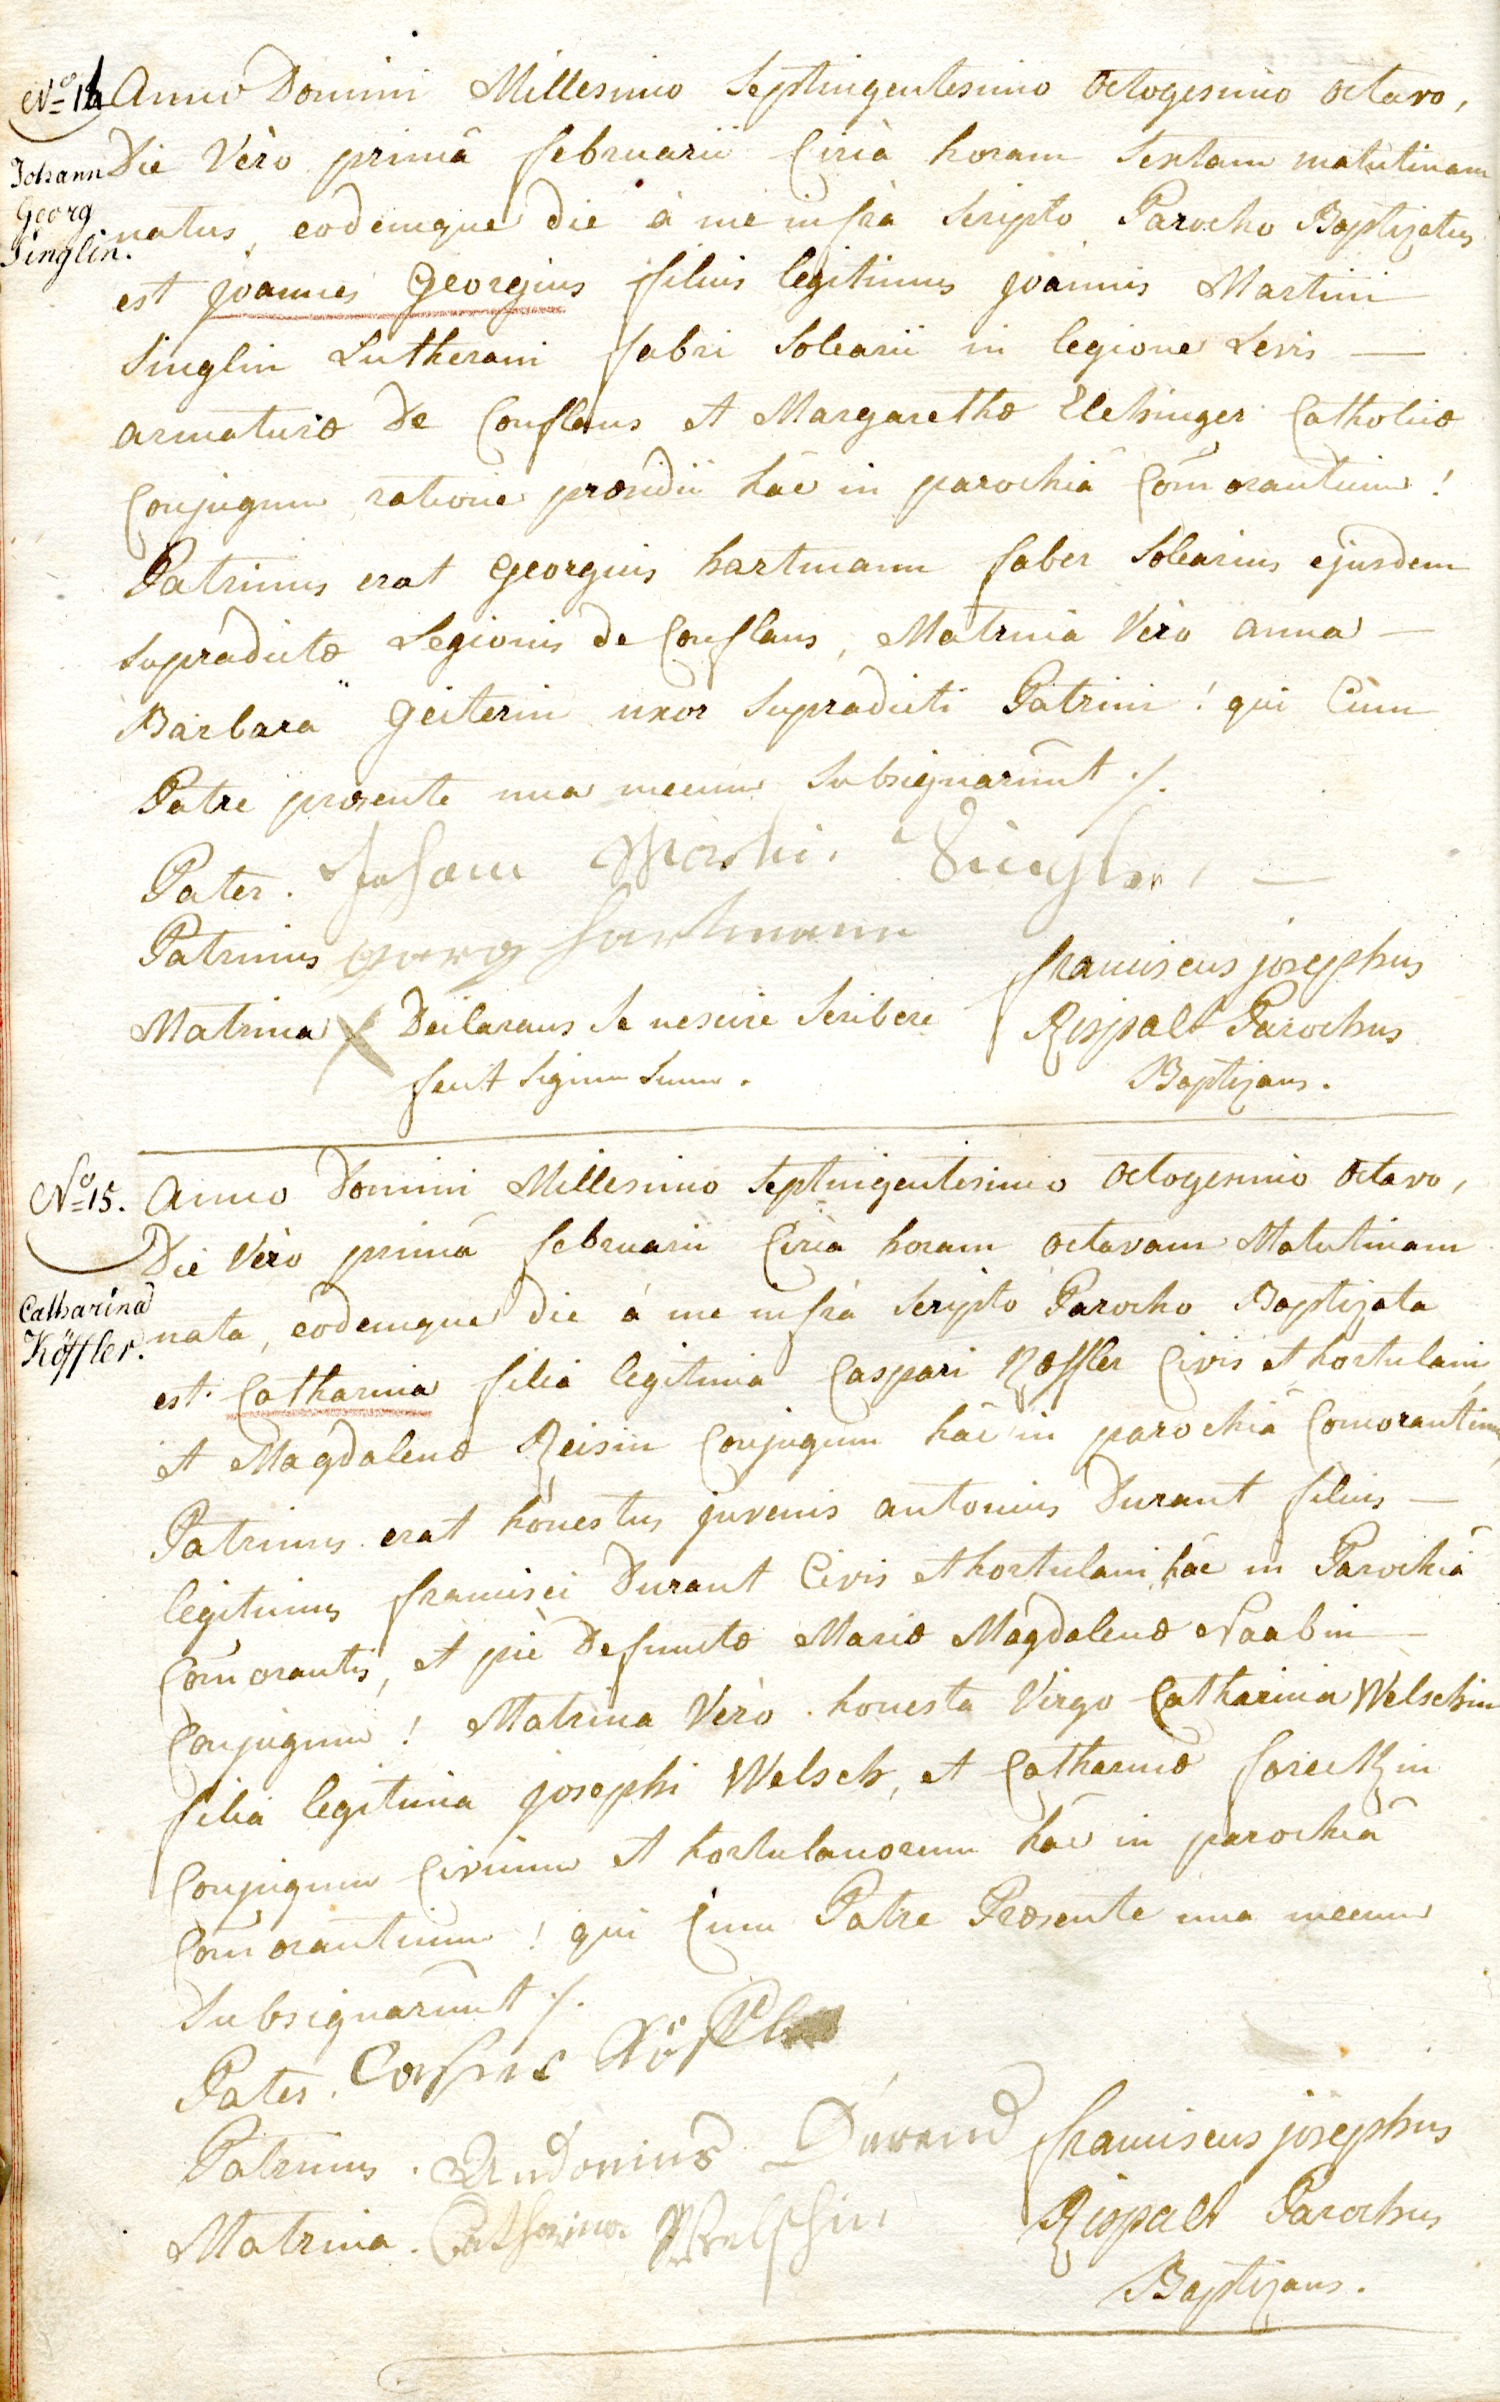 No 14
Johann
Georg
Singlin.
Anno Domini Millesimo Septingentesimo octogesimo octavo,
Die Verò primâ februarii Circà horam Sextam matutinam
natus, eodemque die à me infrà Scripto Parocho Baptizatus
est joannes georgius filius legitimus joannis Martini
Singlin Lutherani fabri Solearii in legione Levis —
armaturæ de Conflans et Margarethæ Elchinger Catholicæ
Conjugum ratione præsidii hâc in parochiâ Com̄orantium!
Patrinus erat georgius hartmann faber Solearius ejusdem
supradictæ Legionis de Conflans, Matrina Verò anna —
Barbara geiterin uxor supradicti Patrini! qui Cum
Patre præsente una mecum Subsignarunt ./.
Pater. Johann Martin Singler —
Patrinus georg hartmann
Matrina X Declarans Se nescire Scribere
fecit Signum Suum.
franciscus josephus
Rispalt Parochus
Baptizans.
No 15.
Catharina
Köffler.
Anno Domini Millesimo Septingentesimo octogesimo octavo,
Die Verò primâ februarii Circà horam octavam Matutinam
nata, eodemque die à me infrà Scripto Parocho Baptizata
est Catharina filia legitima Caspari Kœffler Civis et hortulani
et Magdalenæ Reisin Conjugum hâc in parochiâ Comorantium
Patrinus erat honestus juvenis antonius Durant filius —
legitimus francisci Durant Civis et hortulani hâc in Parochiâ
Com̄orantis, et piè Defunctæ Mariæ Magdalenæ Naabin —
Conjugum! Matrina Verò honesta Virgo Catharina Welschin
filia legitima josephi Welsch, et Catharinæ
Conjugum Civium et hortulanorum hâc in parochiâ
Com̄orantium! qui Cum Patre Præsente una mecum
Subsignarunt ./.
Pater. Casper Köffler
Patrinus. Andonius Durand
Matrina. Catharina Welschin
franciscus josephus
Rispalt Parochus
Baptizans.